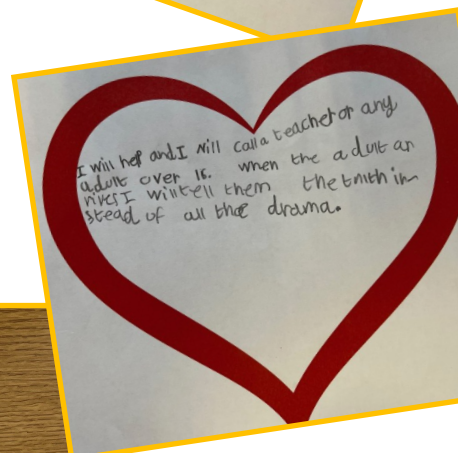 I will help and I will call a teacher or any
adult over 18. when the adult an
rives I will tell them the truth in
stead of all the drama.